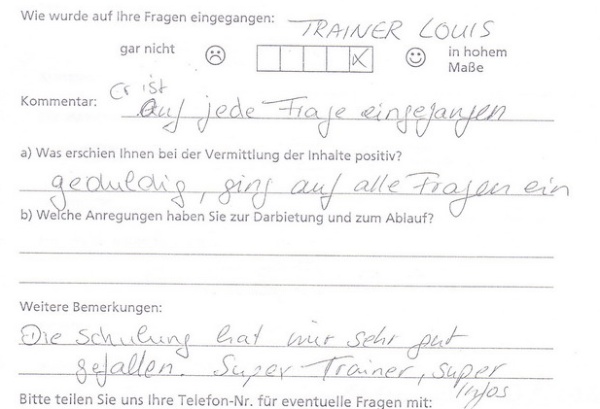 Wie wurde auf Ihre Fragen eingegangen: TRAINER LOUIS
gar nicht in hohem
Maße
Kommentar: Er ist
auf jede Frage eingegangen
a) Was erschien Ihnen bei der Vermittlung der Inhalte positiv?
geduldig, ging auf alle Fragen ein
b) Welche Anregungen haben Sie zur Darbietung und zum Ablauf?
Weitere Bemerkungen:
Die Schulung hat mir sehr gut
gefallen. Super Trainer, super
Infos
Bitte teilen Sie uns Ihre Telefon-Nr. für eventuelle Fragen mit: